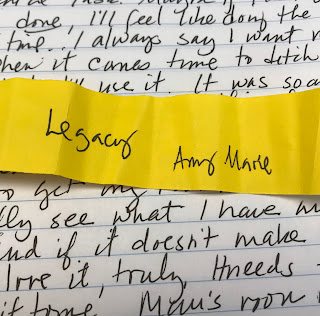 done, I'll feel like doing the
time. I always say I want
when it comes time to ditch
use it. It was so a
Legacy
Amy Marie
to get my
see what I have m
ind if it doesn't make
love it, truly, it needs
it to me. Mom's room